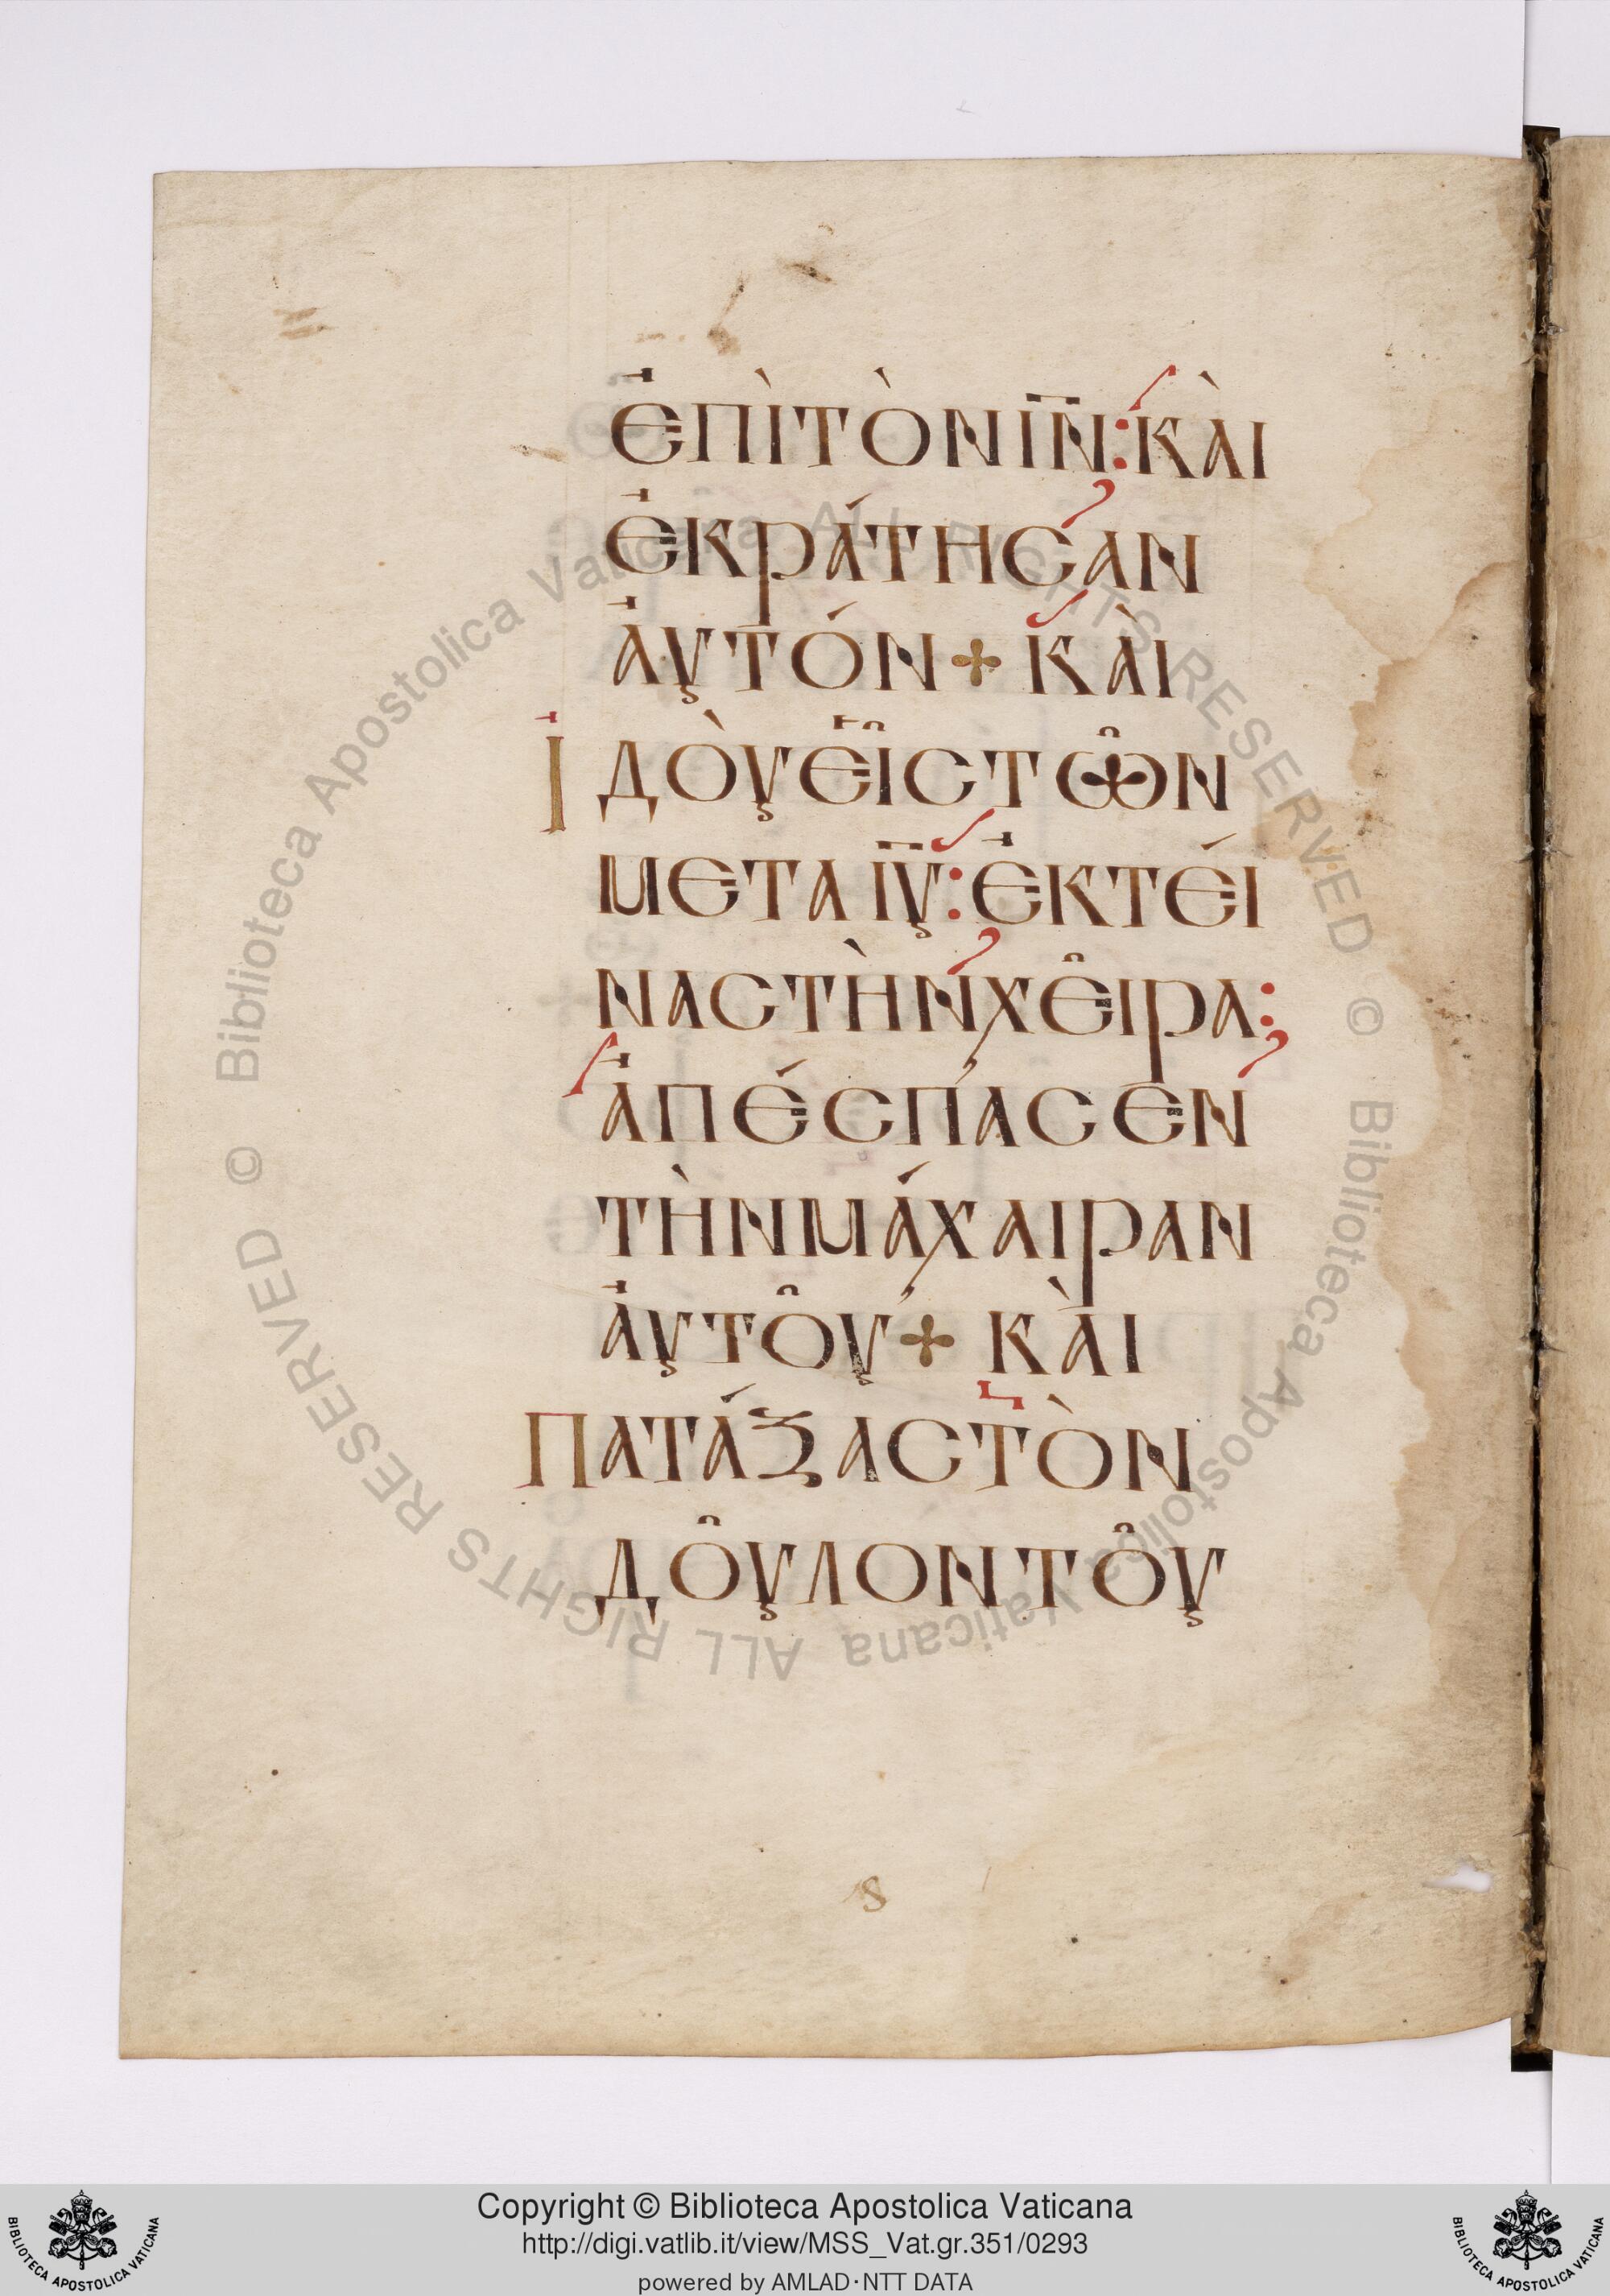 ἐπὶ τὸν ΙΝ̅: κὰι
ἐκράτησαν
ἀυτόν + κὰι
ἰδὸυ ἕις τῶν
μετα ΙΥ̅: ἐκτέι
νας τὴν χεῖρα:
ἀπέσπασεν
τὴν μάχαιραν
ἀυτο͂υ + κὰι
Πατάξας τὸν
δο͂υλον το͂υ
© Biblioteca Apostolica Vaticana ALL RIGHTS RESERVED © Biblioteca Apostolica Vaticana ALL RIGHTS RESERVED
Copyright © Biblioteca Apostolica Vaticana
http://digi.vatlib.it/view/MSS_Vat.gr.351/0293
powered by AMLAD·NTT DATA
BIBLIOTECA APOSTOLICA VATICANA
BIBLIOTECA APOSTOLICA VATICANA